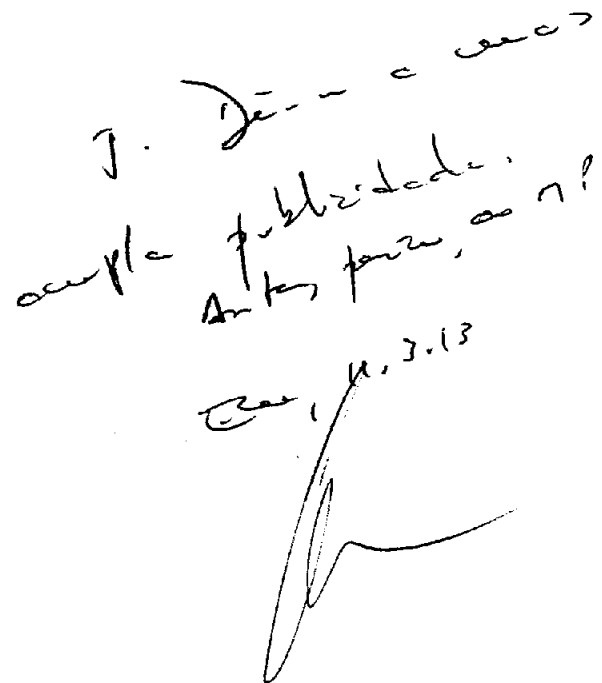 J. Dê-se a mais
ampla publicidade.
Antes, porém, ao MP
11.3.13